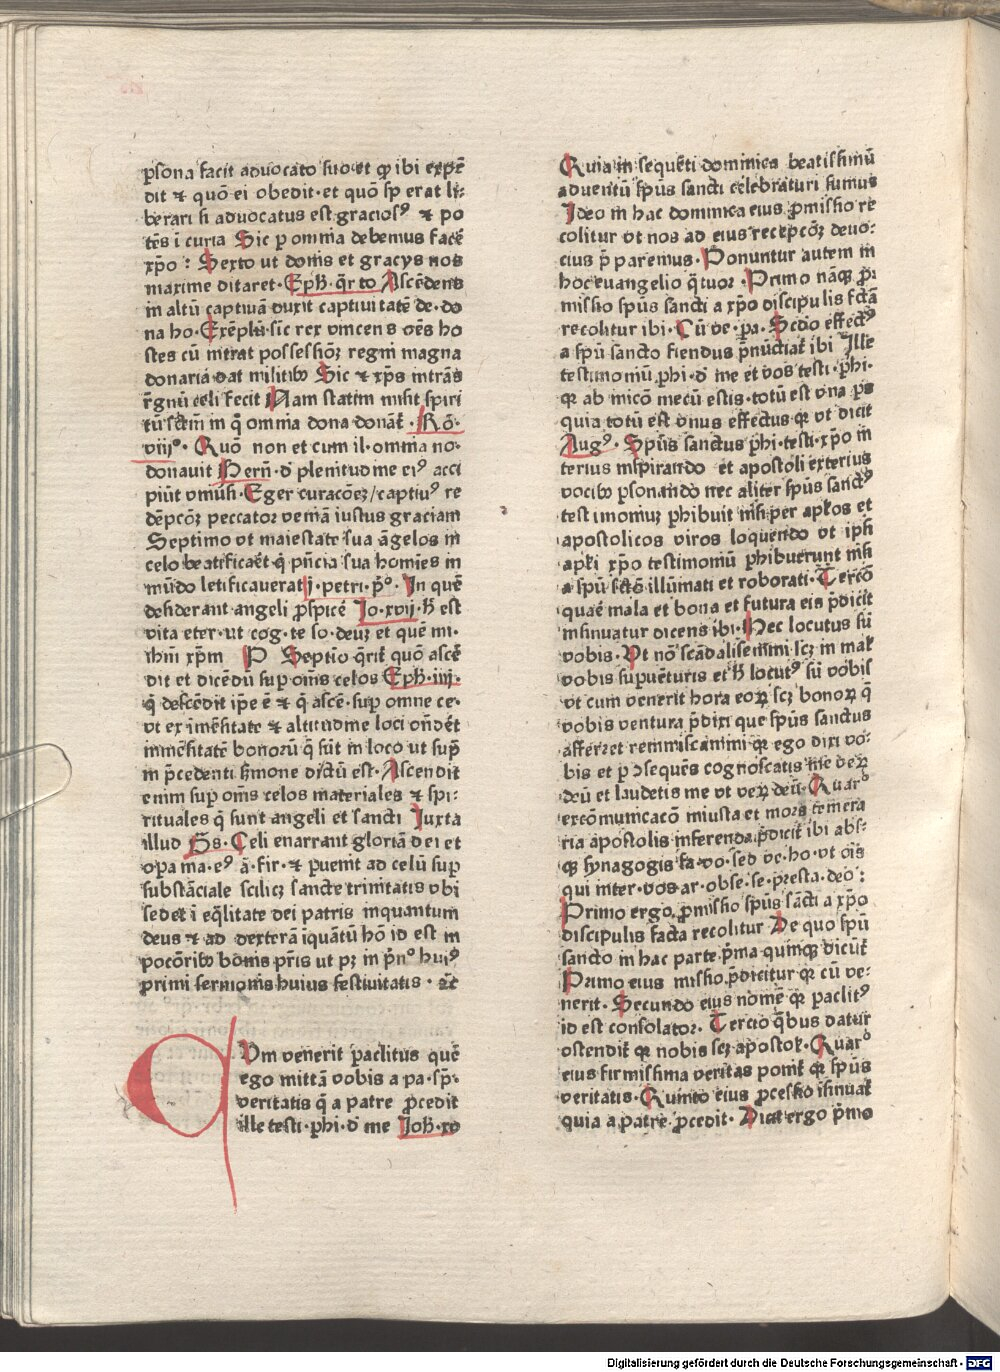 ꝑsona facit aduocato suo et ꝙ ibi expē
dit ⁊ quō ei obedit·et quō sꝑ erat li:
berari si aduocatus est gracios⁹ ⁊ po
tēs ī curia Sic ꝑ omnia debemus facē
xp̄o: Sexto ut donis et gracijs nos
maxime ditaret·Eph̄·q̄rto Ascēdens
in altū captiuā duxit captiuitatē de·do
na ho·Exēplū·sic rex vincens oēs ho
stes cū intrat possessiōꝫ regni magna
donaria dat militibꝰ Sic ⁊ xp̄s intrās
r̄gnū celi fecit Nam statim misit spiri
tū sctm̄ in q̄ omnia dona donāt̄·Ro·
viij°·Quō non et cum il·omnia no·
donauit Bern̄·d̄ plenitudine ei⁹ acci
piūt vniūsi·Eger curacōeꝫ/captiu⁹ re
dēpcōꝫ peccator veniā iustus graciam
Septimo vt maiestate sua āgelos in
celo beatificaēt q̄ pn̄cia sua homīes in
mūdo letificauerat j·petri·p°·In quē
desiderant angeli ꝓspicē Jo·xvij·h̄ est
vita eter·ut cog·te so·deuꝫ et quē mi·
ihm̄ xp̄m P Septīo q̄rit̄ quō ascē
dit et dicēdū sup om̄s celos Eph̄·iiij·
q̄ descēdit ip̄e ē ⁊ q̄ ascē·sup omne ce·
vt ex īmēsitate ⁊ altitudine loci on̄dēt
inmēsitatē bonorū q̄ sūt in loco ut sup̄
in p̄cedenti s̄mone dictū est·Ascendit
enim sup om̄s celos materiales ⁊ spi:
rituales q̄ sunt angeli et sancti Juxta
illud Ps·Celi enarrant gloriā dei et
opa ma·e⁹ ā·fir·⁊ ꝑuenit ad celū sup
substāciale scilicꝫ sancte trinitatis vbi
sedet ī eq̄litate dei patris inquantum
deus ⁊ ad dexterā īquātū hō id est in
pocōribꝰ bonis pr̄is ut pꝫ in p̄n° hui⁹
primi sermonis huius festiuitatis·⁊c̄
Cum venerit paclitus quē
ego mittā vobis a pa·sp̄·
veritatis q̄ a patre ꝓcedit
ille testi·ꝑhi·d̄ me Joh̄·xv
Quia in sequēti dominica beatissimū
aduentū sp̄us sancti celebraturi sumus
Ideo in hac dominica eius ꝓmissio re
colitur vt nos ad eius recepcōꝫ deuo:
cius p̄paremus·Ponuntur autem in
hoc euangelio q̄tuor·Primo nāqꝫ ꝓ:
missio sp̄us sancti a xp̄o discipulis fctā
recolitur ibi·Cū ve·pa·Scd̄o effect⁹
a sp̄u sancto fiendus p̄nūciat̄ ibi Ille
testimoniū ꝑhi·d̄ me et vos testi·ꝑhi·
qꝛ ab inicio mecū estis·totū est vna ꝓs
quia totū est vnus effectus qꝛ vt dicit
Aug⁹·Sp̄us sanctus ꝑhi·testi·xp̄o in
terius inspirando et apostoli exterius
vocibꝰ ꝑsonando nec aliter sp̄us sanct⁹
testimoniuꝫ ꝑhibuit nisi per apl̄os et
apostolicos viros loquendo vt ip̄si
apl̄i xp̄o testimoniū ꝑhibuerunt nisi
a sp̄u sctō illūinati et roborati·Tercō
quaē mala et bona et futura eis p̄dicit
insinuatur dicens ibi·Hec locutus sū
vobis·Vt nō scādalisemini·scꝫ in mal̄
vobis supuēturis et h̄ locut⁹ sū vobis
vt cum venerit hora eoꝝ scꝫ bonoꝝ q̄
vobis ventura p̄dixi que sp̄us sanctus
afferret reminiscamini qꝛ ego dixi vo·
bis et ꝑ ↄsequēs cognoscatis me veꝝ
deū et laudetis me vt veꝝ deū·Quar°
excōmunicacō iniusta et mors temera
ria apostolis inferenda p̄dicit̄ ibi abs·
qꝫ synagogis fa·vo·sed ve·ho·vt oīs
qui inter·vos ar·obse·se·presta·deo:
Primo ergo ꝓmissio sp̄us sācti a xp̄o
discipulis facta recolitur De quo sp̄u
sancto in hac parte p̄ma quinqꝫ dicūt̄
Primo eius missio p̄dicitur qꝛ cū ve:
nerit·Secundo eius nomē qꝛ paclit⁹
id est consolator·Tercio q̄bus datur
ostendit̄ qꝛ nobis scꝫ apostol̄·Quar°
eius firmissima veritas ponit̄ qꝛ sp̄us
veritatis·Quinto eius ꝓcessio īsinuat̄
quia a patre ꝓcedit·Dicit ergo p̄mo
Digitalisierung gefördert durch die Deutsche Forschungsgemeinschaft - DFG